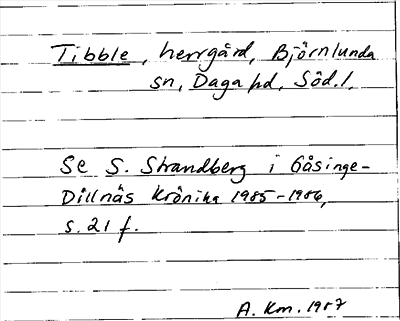 Tibble, herrgård, Björnlunda
sn, Daga hd, Söd.l.
Se S. Strandberg i Gåsinge-
Dillnäs Krönika 1985-1986,
s. 21 f.
A. Km. 1987